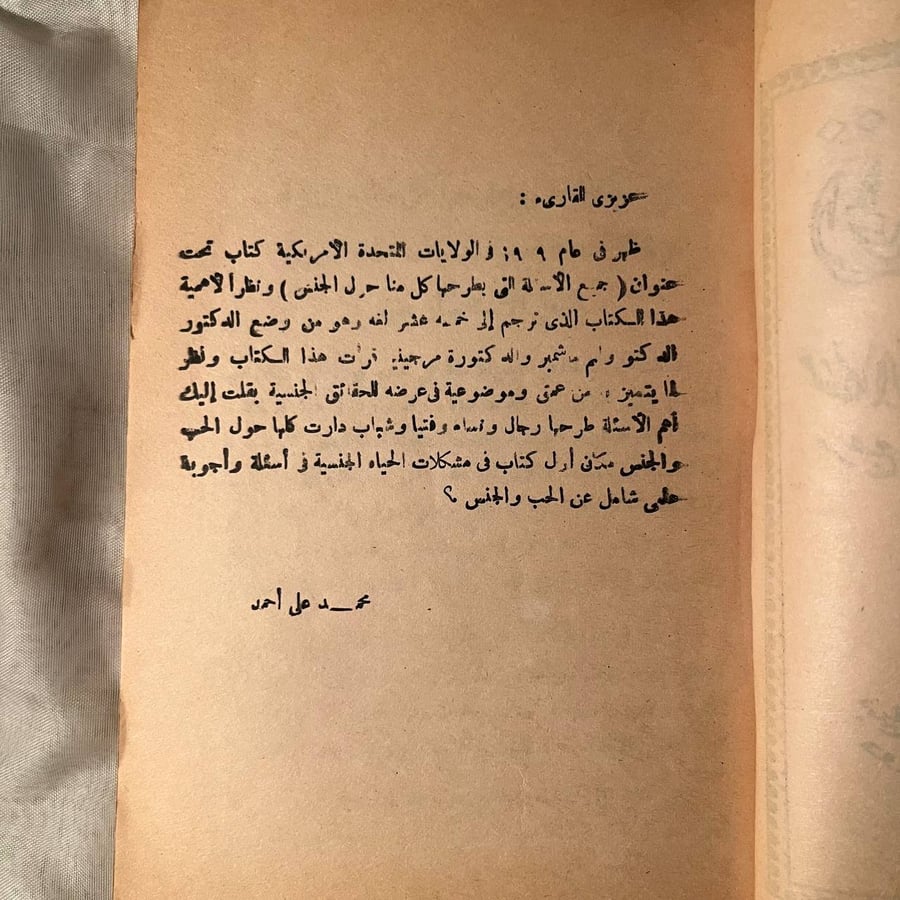 عزيزى القارىء :
ظهر فى عام الولايات المتحدة الأمريكية كتاب تحت
عنوان ( جميع الأسئلة التى يطرحها كل منا حول الجنس ) ونظراً لأهمية
هذا الكتاب الذى ترجم إلى خمسه عشر لغه وهو من وضع الدكتور
والدكتورة هذا الكتاب ونظر
لما يتميز به من عمق وموضوعية فى عرضه للحقائق الجنسية نقلت إليك
أهم الأسئلة طرحها رجال ونساء وفتيا وشباب دارت كلها حول الحب
والجنس أول كتاب فى مشكلات الحياه الجنسية فى أسئلة وأجوبة
علمى شامل عن الحب والجنس ؟
محمـــد على أحمد